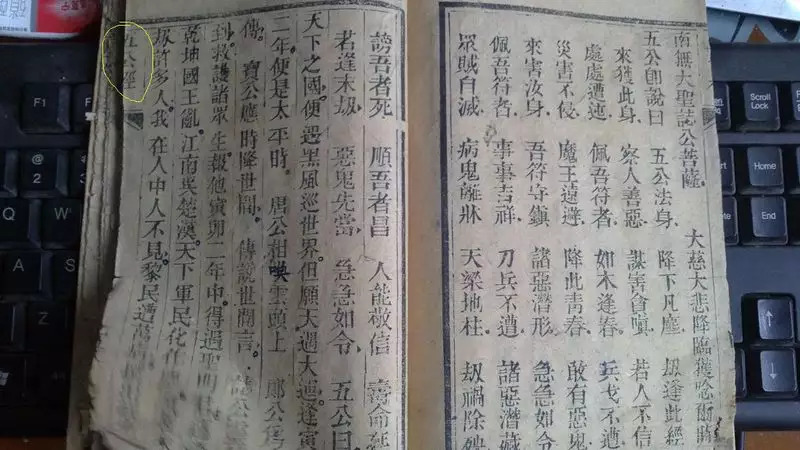 南摡大聖誌公菩薩 大慈大悲降臨獲唸
五公卽說曰 五公法身 降下凡塵 刼逢此經
來獲此身 察人善惡 謀害貪嗔 若人不信
處處遭迍 佩吾符者 如木逢春 兵戈不遭
災害不侵 魔王遠避 降此青春 敢有惡鬼
來害汝身 吾符守鎮 諸惡潛形 急急如令
佩吾符者 事事吉祥 刀兵不遭 諸惡潛藏
眾賊自滅 病鬼離牀 天梁地柱 刼禍除殃
謗吾者死 順吾者昌 人能敬信 壽命延
若逢末刼 惡鬼先當 急急如令 五公曰
天下之國便遇黑風巡世界但願天過大運逢寅
二年便是太平時 唐公相映雲頭上 郎公
傳 寶公應時降世間 傳說世間言
到救護諸眾生報他寅卯二年中得過聖明
乾坤國王亂江南吳楚漢天下軍民化作
坂許多人我在人中人不見黎民遭萬
五公經
F1
F2
@
2
Q
W
A
S
Z
Scroll
Lock
Insert
Home
Delete
End